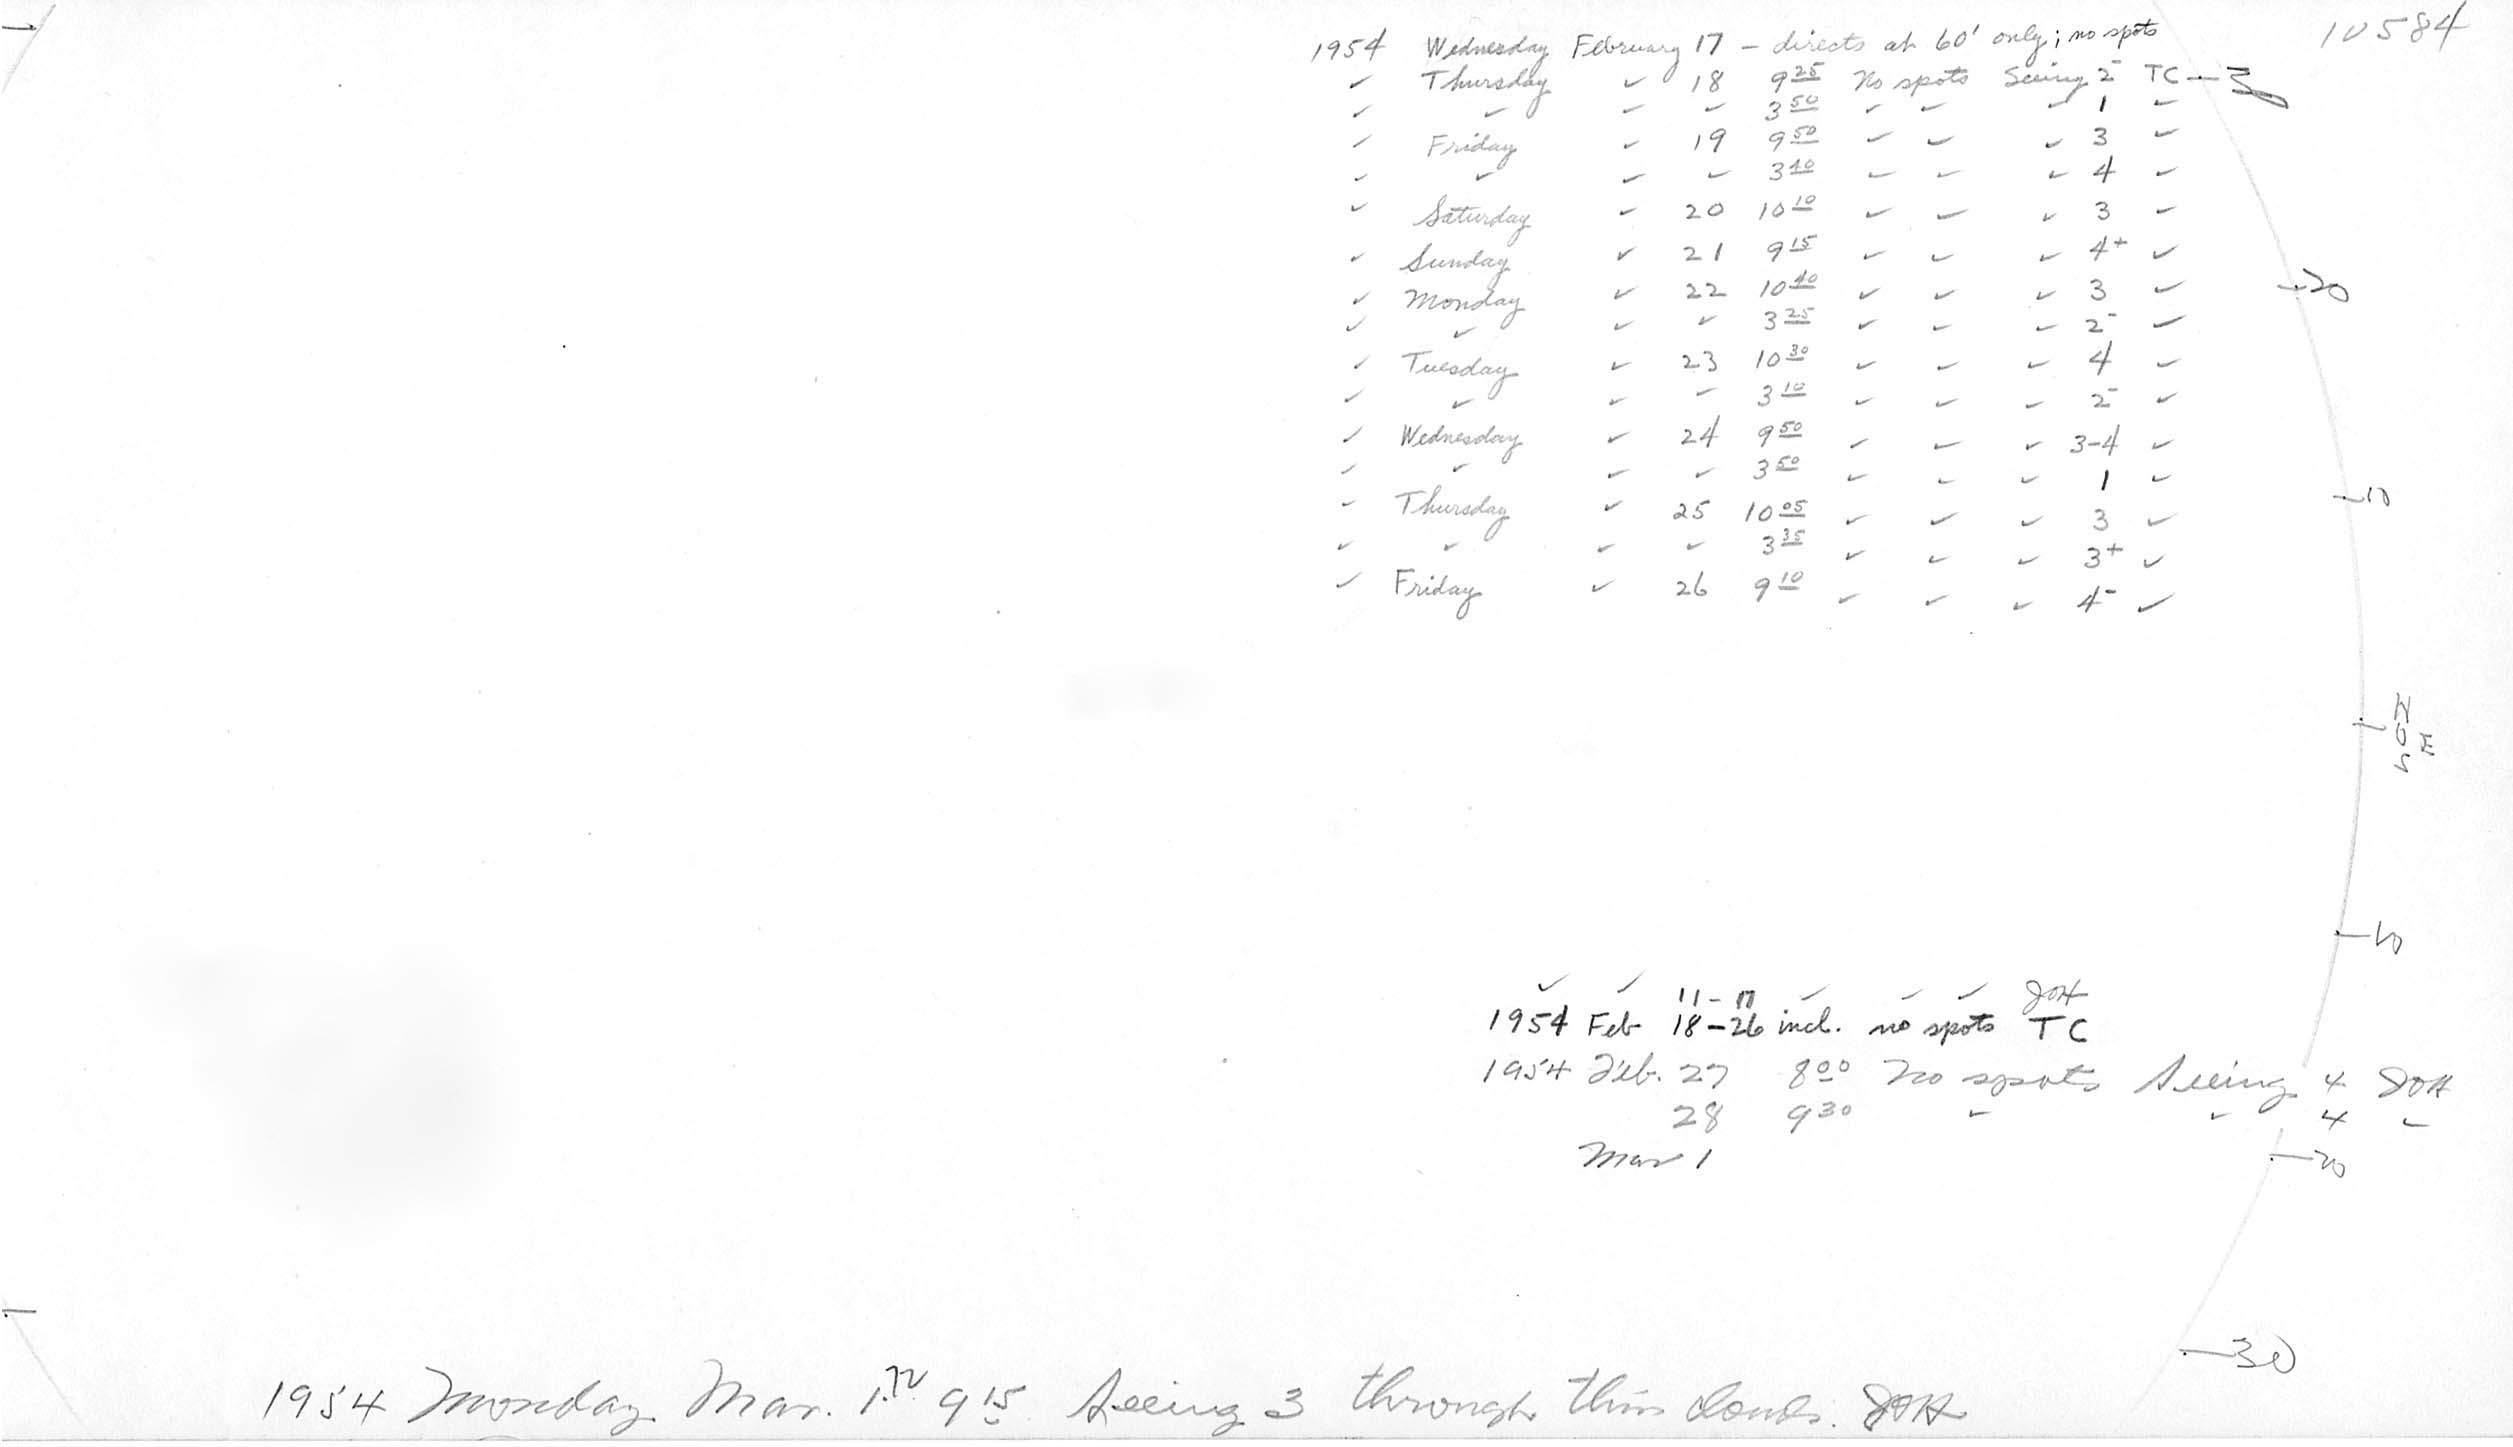 10584
1954 Wednesday February 17 – directs at 60' only; no spots
✓ Thursday ✓ 18 9 25 No spots Seeing 2- TC
✓ ✓ ✓ ✓ 3 50 ✓ ✓ ✓ 1 ✓
✓ Friday ✓ 19 9 50 ✓ ✓ ✓ 3 ✓
✓ ✓ ✓ ✓ 3 40 ✓ ✓ ✓ 4 ✓
✓ Saturday ✓ 20 10 10 ✓ ✓ ✓ 3 ✓
✓ Sunday ✓ 21 9 15 ✓ ✓ ✓ 4+ ✓
✓ Monday ✓ 22 10 40 ✓ ✓ ✓ 3 ✓
✓ ✓ ✓ ✓ 3 25 ✓ ✓ ✓ 2- ✓
✓ Tuesday ✓ 23 10 30 ✓ ✓ ✓ 4 ✓
✓ ✓ ✓ ✓ 3 10 ✓ ✓ ✓ 2- ✓
✓ Wednesday ✓ 24 9 50 ✓ ✓ ✓ 3-4 ✓
✓ ✓ ✓ ✓ 3 50 ✓ ✓ ✓ 1 ✓
✓ Thursday ✓ 25 10 05 ✓ ✓ ✓ 3 ✓
✓ ✓ ✓ ✓ 3 35 ✓ ✓ ✓ 3+ ✓
✓ Friday ✓ 26 9 10 ✓ ✓ ✓ 4- ✓
30
20
10
N
0 E
S
10
✓ ✓ 11-17 ✓ ✓ ✓ JOH
1954 Feb 18-26 incl. no spots TC
1954 Feb. 27 8 00 No spots Seeing 4 JOH
28 9 30 ✓ ✓ 4 ✓
Mar 1
20
30
1954 Monday Mar. 1. 9 15 Seeing 3 through thin clouds. JOH